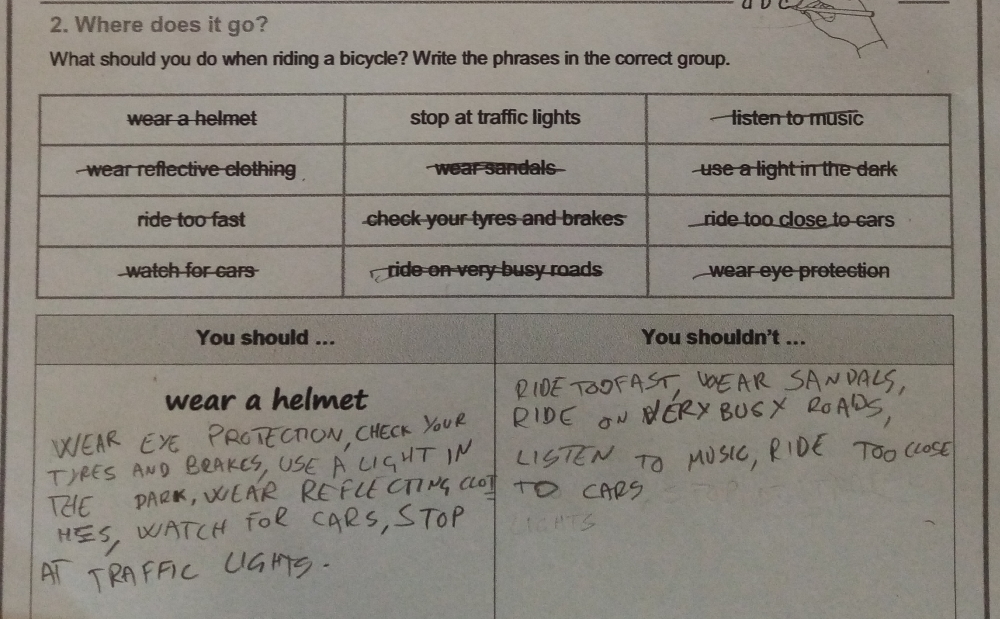 a b c
2. Where does it go?
What should you do when riding a bicycle? Write the phrases in the correct group.
wear a helmet stop at traffic lights listen to music
wear reflective clothing wear sandals use a light in the dark
ride too fast check your tyres and brakes ride too close to cars
watch for cars ride on very busy roads wear eye protection
You should ...
wear a helmet
WEAR EYE PROTECTION, CHECK YOUR
TYRES AND BRAKES, USE A LIGHT IN
THE DARK, WEAR REFLECTING CLOT
HES, WATCH FOR CARS, STOP
AT TRAFFIC LIGHTS.
You shouldn't ...
RIDE TOO FAST, WEAR SANDALS,
RIDE ON VERY BUSY ROADS,
LISTEN TO MUSIC, RIDE TOO CLOSE
TO CARS